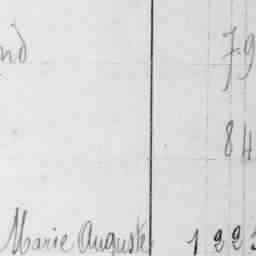 nd 79
84
Marie Auguste 1223